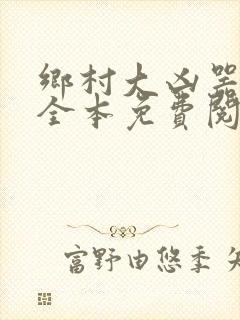 鄉村大凶器
全本免費閱
富野由悠季